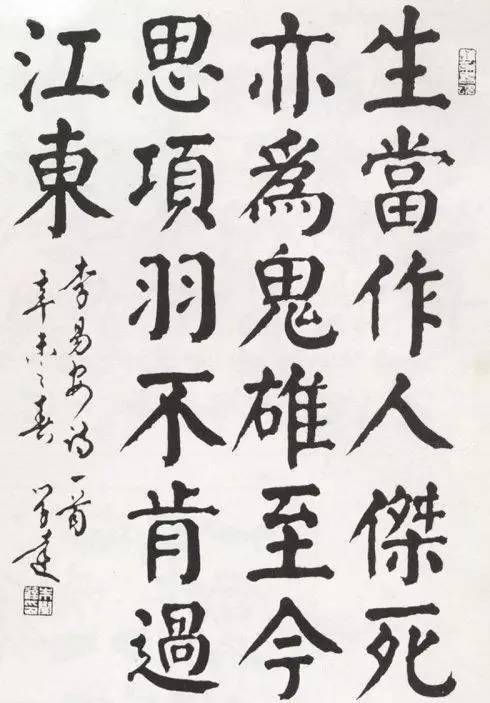 生當作人傑死
亦為鬼雄至今
思項羽不肯過
江東
李易安詩一首
辛未之春